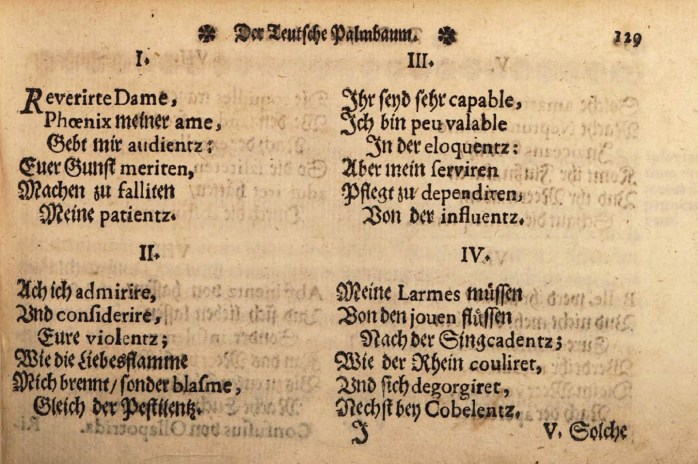 Der Teutsche Palmbaum. 129
I.
Reverirte Dame,
Phœnix meiner ame,
Gebt mir audientz:
Euer Gunst meriten,
Machen zu falliten
Meine patientz.
II.
Ach ich admirire,
Vnd considerire,
Eure violentz;
Wie die Liebesflamme
Mich brennt/ sonder blasme,
Gleich der Pestilentz.
III.
Ihr seyd sehr capable,
Ich bin peu valable
In der eloquentz:
Aber mein serviren
Pflegt zu dependiren,
Von der influentz.
IV.
Meine Larmes müssen
Von den jouen flüssen
Nach der Singcadentz;
Wie der Rhein couliret,
Vnd sich degorgiret,
Nechst bey Cobelentz.
J V. Solche